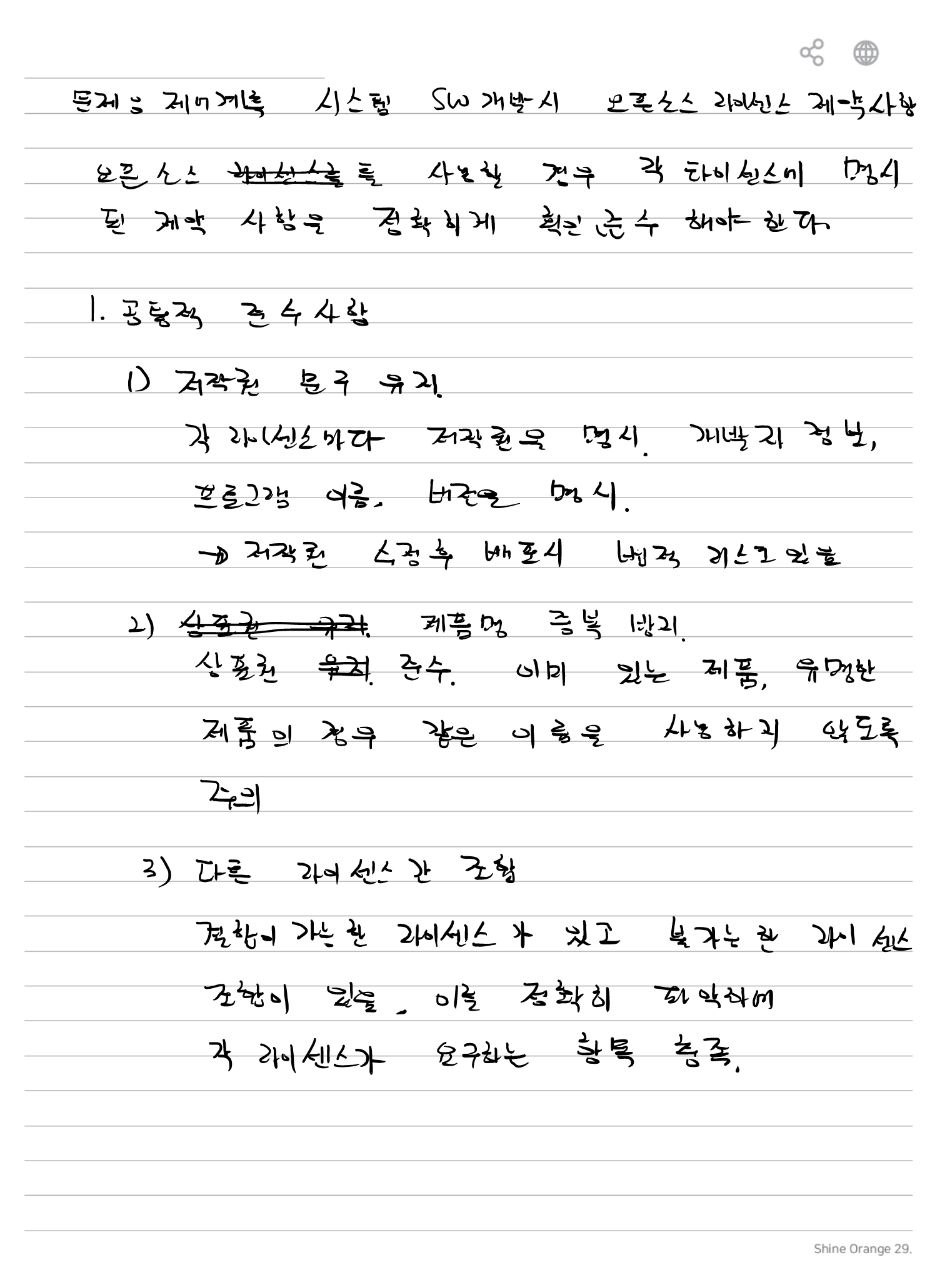 문제 : 제어계측 시스템 SW개발시 오픈소스 라이센스 제약사항
오픈소스를 사용할 경우 각 라이센스에 명시
된 제약 사항을 정확하게 확인 준수 해야 한다.
1. 공통적 준수사항
1) 저작권 문구 유지.
각 라이센스마다 저작권을 명시. 개발자 정보,
프로그램 이름, 버전을 명시.
→ 저작권 수정후 배포시 법적 리스크 있음
2) 제품명 중복 방지.
상표권 준수. 이미 있는 제품, 유명한
제품의 경우 같은 이름을 사용하지 않도록
주의
3) 다른 라이센스간 조합
결합이 가능한 라이센스가 있고 불가능한 라이센스
조합이 있음. 이를 정확히 파악하여
각 라이센스가 요구하는 항목 충족.
Shine Orange 29.